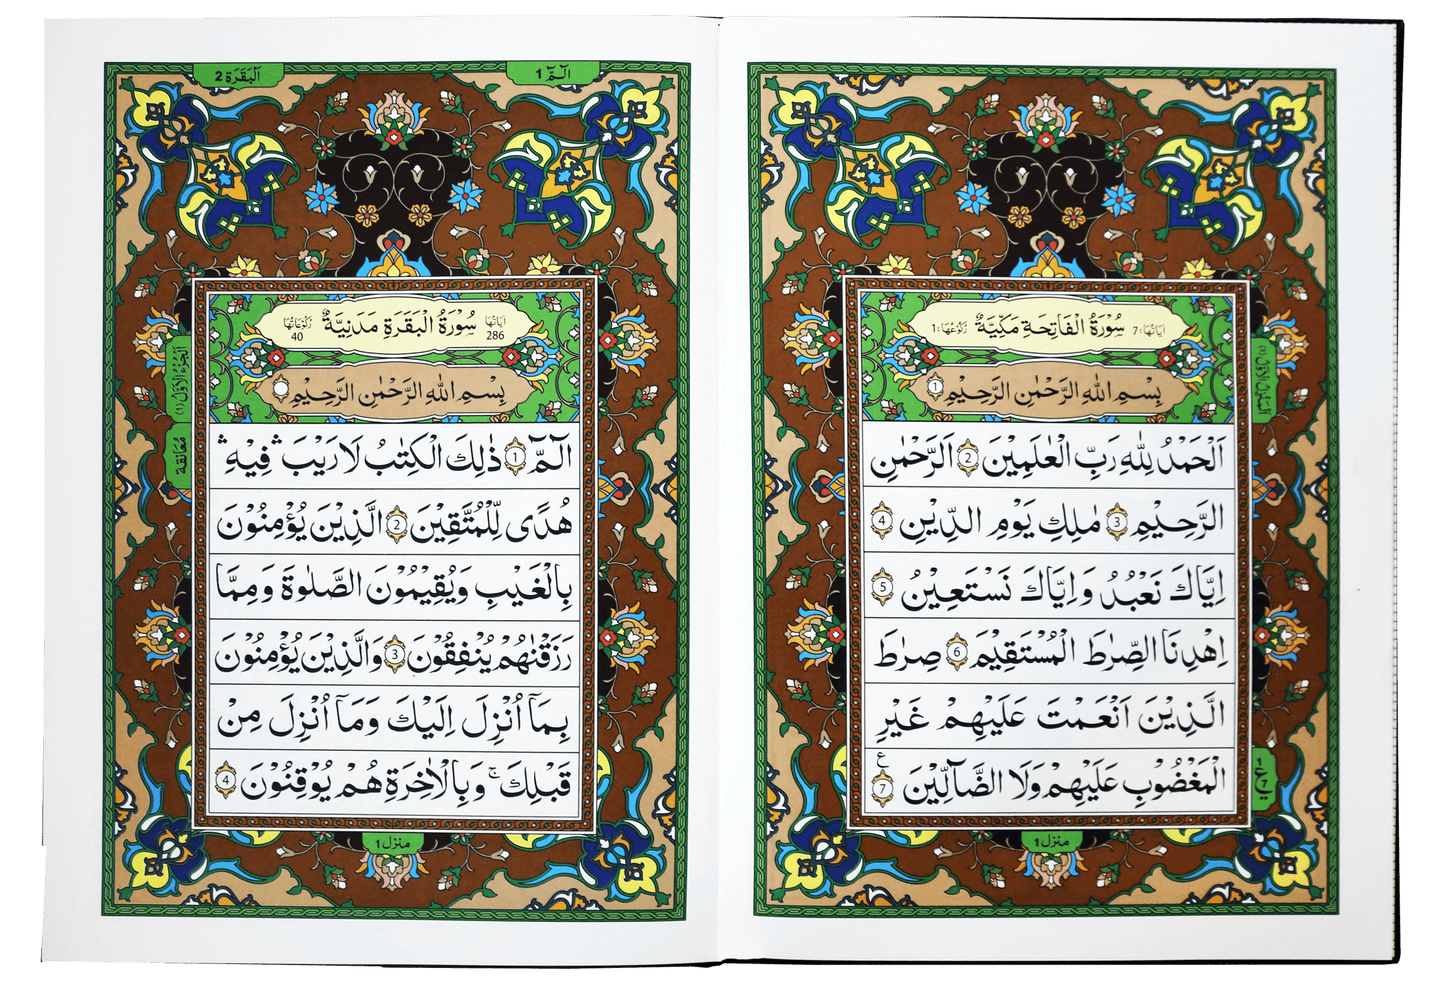 اٰيَاتُهَا: 7 سُوْرَةُ الْفَاتِحَةِ مَكِّيَّةٌ رُكُوْعُهَا: 1
بِسْمِ اللّٰهِ الرَّحْمٰنِ الرَّحِيْمِ 1
اَلْحَمْدُ لِلّٰهِ رَبِّ الْعٰلَمِيْنَ 2 اَلرَّحْمٰنِ
الرَّحِيْمِ 3 مٰلِكِ يَوْمِ الدِّيْنِ 4
اِيَّاكَ نَعْبُدُ وَاِيَّاكَ نَسْتَعِيْنُ 5
اِهْدِنَا الصِّرَاطَ الْمُسْتَقِيْمَ 6 صِرَاطَ
الَّذِيْنَ اَنْعَمْتَ عَلَيْهِمْ غَيْرِ
الْمَغْضُوْبِ عَلَيْهِمْ وَلَا الضَّآلِّيْنَ 7 ع
1 ع 7
منزل 1
الٓمّٓ 1
اَلْبَقَرَة 2
اٰيَاتُهَا 286 سُوْرَةُ الْبَقَرَةِ مَدَنِيَّةٌ رُكُوْعَاتُهَا 40
بِسْمِ اللّٰهِ الرَّحْمٰنِ الرَّحِيْمِ
الٓمّٓ 1 ذٰلِكَ الْكِتٰبُ لَا رَيْبَ ۛ فِيْهِ ۛ
هُدًى لِّلْمُتَّقِيْنَ 2 الَّذِيْنَ يُؤْمِنُوْنَ
بِالْغَيْبِ وَيُقِيْمُوْنَ الصَّلٰوةَ وَمِمَّا
رَزَقْنٰهُمْ يُنْفِقُوْنَ 3 وَالَّذِيْنَ يُؤْمِنُوْنَ
بِمَآ اُنْزِلَ اِلَيْكَ وَمَآ اُنْزِلَ مِنْ
قَبْلِكَ ۚ وَبِالْاٰخِرَةِ هُمْ يُوْقِنُوْنَ 4
اَلْجُزْءُ الْاَوَّلُ (1)
مُعَانقة
منزل 1